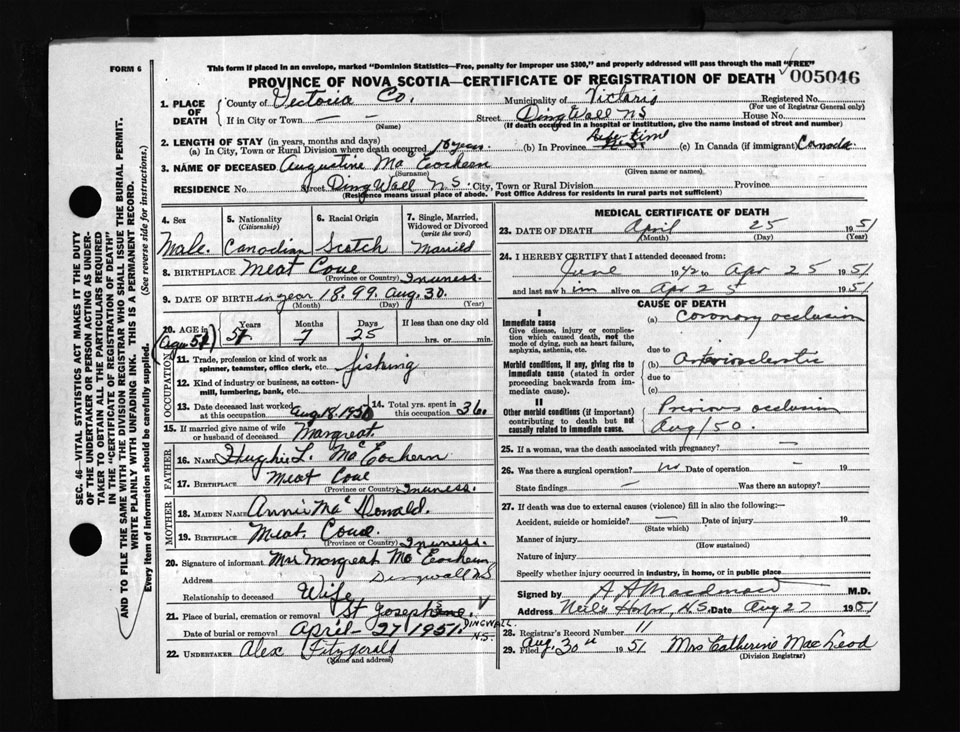 FORM 6
This form if placed in an envelope, marked "Dominion Statistics—Free, penalty for improper use $300," and properly addressed will pass through the mail "FREE"
PROVINCE OF NOVA SCOTIA—CERTIFICATE OF REGISTRATION OF DEATH 005046
1. PLACE OF DEATH
County of Victoria Co. Municipality of Victoria Registered No.
(For use of Registrar General only)
If in City or Town — — Street Ding Wall N S House No.
(Name) (If death occurred in a hospital or institution, give the name instead of street and number)
2. LENGTH OF STAY (in years, months and days)
(a) In City, Town or Rural Division where death occurred 18 years. (b) In Province Life time (c) In Canada (if immigrant) Canada
3. NAME OF DECEASED Augustine Mac Eocheen
(Surname) (Given name or names)
RESIDENCE No. Street Ding Wall N S. City, Town or Rural Division Province
(Residence means usual place of abode. Post Office Address for residents in rural parts not sufficient)
4. Sex Male.
5. Nationality (Citizenship) Canadian
6. Racial Origin Scotch
7. Single, Married, Widowed or Divorced (write the word) Married
8. BIRTHPLACE Meat Cove Inverness.
(Province or Country)
9. DATE OF BIRTH in year 18.99. Aug. 30.
(Month) (Day) (Year)
10. AGE in Years Months Days If less than one day old
(Age 51) 51 7 25 hrs. or min.
OCCUPATION
11. Trade, profession or kind of work as spinner, teamster, office clerk, etc. fishing
12. Kind of industry or business, as cotton-mill, lumbering, bank, etc.
13. Date deceased last worked at this occupation Aug 18. 1950 14. Total yrs. spent in this occupation 36
15. If married give name of wife or husband of deceased Margreat
FATHER
16. NAME Hughie L. Mac Eochern
17. BIRTHPLACE Meat Cove Inverness.
(Province or Country)
MOTHER
18. MAIDEN NAME Annie Mac Donald.
19. BIRTHPLACE Meat Cove. Inverness.
(Province or Country)
20. Signature of informant Mrs Margreat Mc Eochern
Address Dingwall N S
Relationship to deceased Wife
21. Place of burial, cremation or removal St Joseph DINGWALL. N.S.
Date of burial or removal April - 27 1951.
22. UNDERTAKER Alex Fitzgerald
(Name and address)
MEDICAL CERTIFICATE OF DEATH
23. DATE OF DEATH April 25 1951
(Month) (Day) (Year)
24. I HEREBY CERTIFY that I attended deceased from:
June 1942 to Apr 25 1951
and last saw him alive on Apr 25 1951
CAUSE OF DEATH
I
Immediate cause
Give disease, injury or complication which caused death, not the mode of dying, such as heart failure, asphyxia, asthenia, etc.
(a) Coronary occlusion
due to
Morbid conditions, if any, giving rise to immediate cause (stated in order proceeding backwards from immediate cause).
(b) Arteriosclerotic
due to
(c)
II
Other morbid conditions (if important) contributing to death but not causally related to immediate cause.
Previous occlusion
Aug/50.
25. If a woman, was the death associated with pregnancy? —
26. Was there a surgical operation? no Date of operation — 19
State findings — Was there an autopsy?
27. If death was due to external causes (violence) fill in also the following:
Accident, suicide or homicide? — Date of injury 19
(State which)
Manner of injury
(How sustained)
Nature of injury
Specify whether injury occurred in industry, in home, or in public place
Signed by M.D.
Address Neils Harbor, N.S. Date Aug 27 1951
28. Registrar's Record Number 11
29. Filed Aug. 30th 1951 Mrs Catherine Mac Leod
(Division Registrar)
SEC. 46—VITAL STATISTICS ACT MAKES IT THE DUTY
OF THE UNDERTAKER OR PERSON ACTING AS UNDER-
TAKER TO OBTAIN ALL THE PARTICULARS REQUIRED
IN THE "CERTIFICATE OF REGISTRATION OF DEATH"
AND TO FILE THE SAME WITH THE DIVISION REGISTRAR WHO SHALL ISSUE THE BURIAL PERMIT.
WRITE PLAINLY WITH UNFADING INK. THIS IS A PERMANENT RECORD.
Every item of information should be carefully supplied. (See reverse side for instructions.)